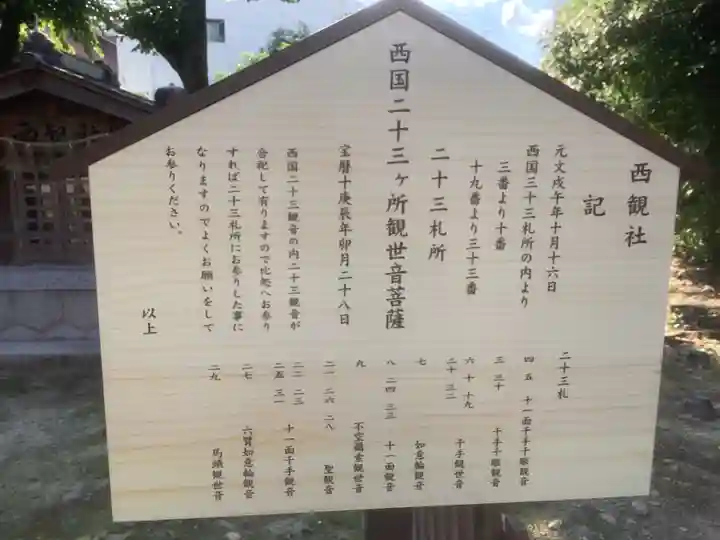 西観社
記
元文戌午年十月十六日
西国三十三札所の内より
三番より十番
十九番より三十三番
二十三札所
西国二十三ヶ所観世音菩薩
宝暦十庚辰年卯月二十八日
西国二十三観音の内二十三観音が
合祀して有りますので此処へお参り
すれば二十三札所にお参りした事に
なりますのでよくお願いをして
お参りください。
以上
二十三札
四 五 十一面千手千眼観音
三 三十 千手千眼観音
六 十 十九
二十 三二 千手観世音
七 如意輪観音
八 二四 三三 十一面観音
九 不空羂索観世音
二一 二六 二八 聖観音
二二 二三
二五 三一 十一面千手観音
二七 六臂如意輪観音
二九 馬頭観世音